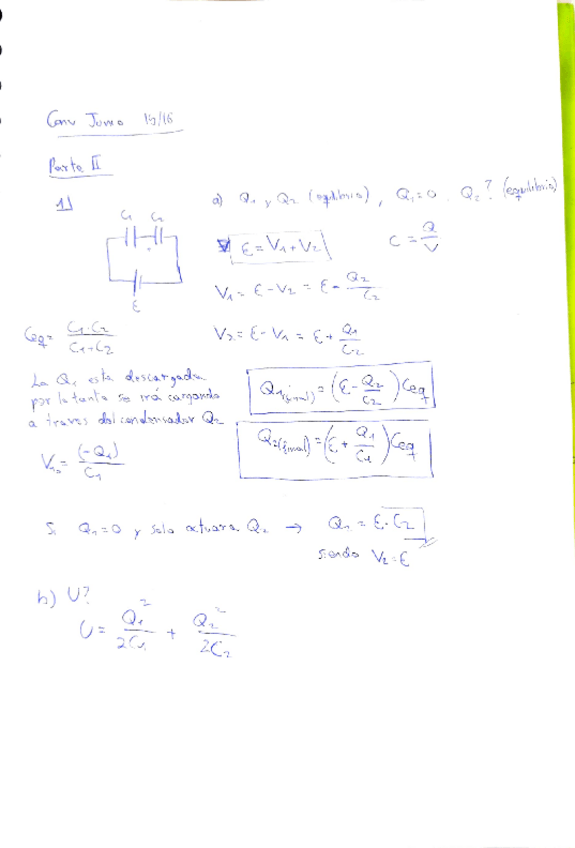 Conv Junio 15/16
Parte II
1)
a) Q₁ y Q₂ (equilibrio), Q₁=0, Q₂? (equilibrio)
C₁ C₂
ε
ε = V₁ + V₂
C = Q/V
V₁ = ε - V₂ = ε - Q₂/C₂
Ceq = C₁·C₂/C₁+C₂
V₂ = ε - V₁ = ε + Q₁/C₂
La Q₁ esta descargada
por lo tanto se irá cargando
a traves del condensador Q₂
Q₁(final) = (ε - Q₂/C₂) Ceq
Q₂(final) = (ε + Q₁/C₁) Ceq
= (-Q₁)/C₁
Si Q₁=0 y solo actuara Q₂ → Q₁ = ε·C₂
siendo V₂=ε
b) U?
U = Q₁²/2C₁ + Q₂²/2C₂